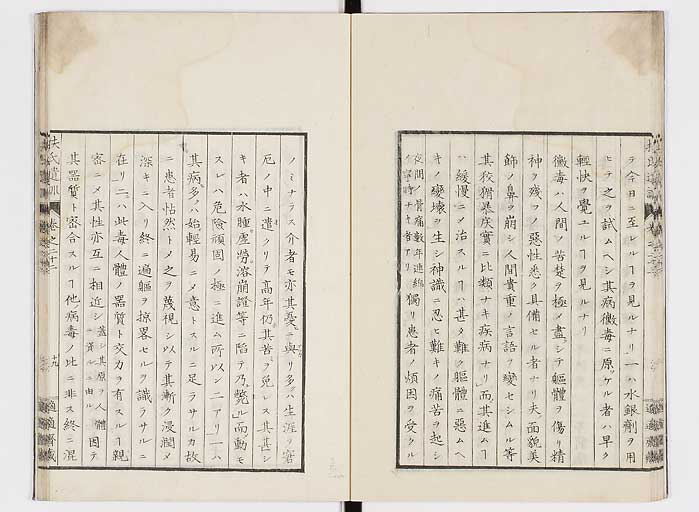 ラ今日ニ至レルヿヲ見ルナリ一ハ水銀劑ヲ用
ヒテ之ヲ試ムヘシ其病黴毒ニ原ツケル者ハ早ク
輕快ヲ覺ユルヿヲ見ルナリ
黴毒ハ人間ノ苦楚ヲ極メ盡シテ軀體ヲ傷リ精
神ヲ殘フノ惡性悉ク具備セル者ナリ夫面貌美
飾ノ鼻ヲ崩シ人間貴重ノ言語ヲ變セシムル等
其狡猾暴疾實ニ比類ナキ疾病ナリ而其進ムヿ
ハ緩慢ニメ治スルヿハ甚タ難ク軀體ニ惡ムヘ
キノ變壞ヲ生シ神識ニ忍ヒ難キノ痛苦ヲ起シ
夜間ノ骨痛數年連綿
時ナキ者アリ
獨リ患者ノ煩困ヲ受クル
ノミナラス介者モ亦其憂ニ與リ多クハ生涯ヲ窘
厄ノ中ニ遣クリテ高年仍其苦ヲ免レス其甚シ
キ者ハ水腫虚勞溶崩證等ニ陷テ乃斃ル而動モ
スレハ危險頑固ノ極ニ進ム所以ン二アリ一ハ
其病多クハ始輕易ニメ意トスルニ足ラサルカ故
ニ患者怗然トメ之ヲ蔑視シ以テ其漸ク浸潤メ
深キニ入リ終ニ遍軀ヲ掠畧セルヲ識ラサルニ
在リ二ハ此毒人體ノ器質ト交力ヲ有スルヿ親
密ニメ其性亦互ニ相近シ
蓋シ其原ヲ人體
ニ資ルニ由ル
因テ
其器質ト密合スルヿ他ノ病毒ノ比ニ非ス終ニ混
扶氏遺訓
卷之二十一
十九
適適齋藏